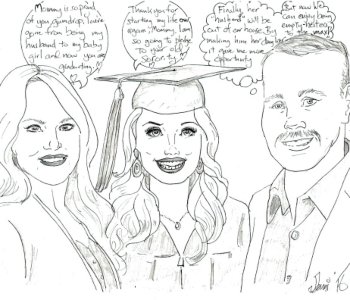 Mommy is so proud
of you, gumdrop, I have
gone from being my
husband to my baby
girl and now you are
graduating!
Thank you for
starting my life over
again, Mommy. I am
so going to pledge
to your old
Sorority.
Finally her
husband will be
out of our house. By
making him her daughter
it gave me more
opportunity
But now we
can enjoy being
empty-nesters
to the max!